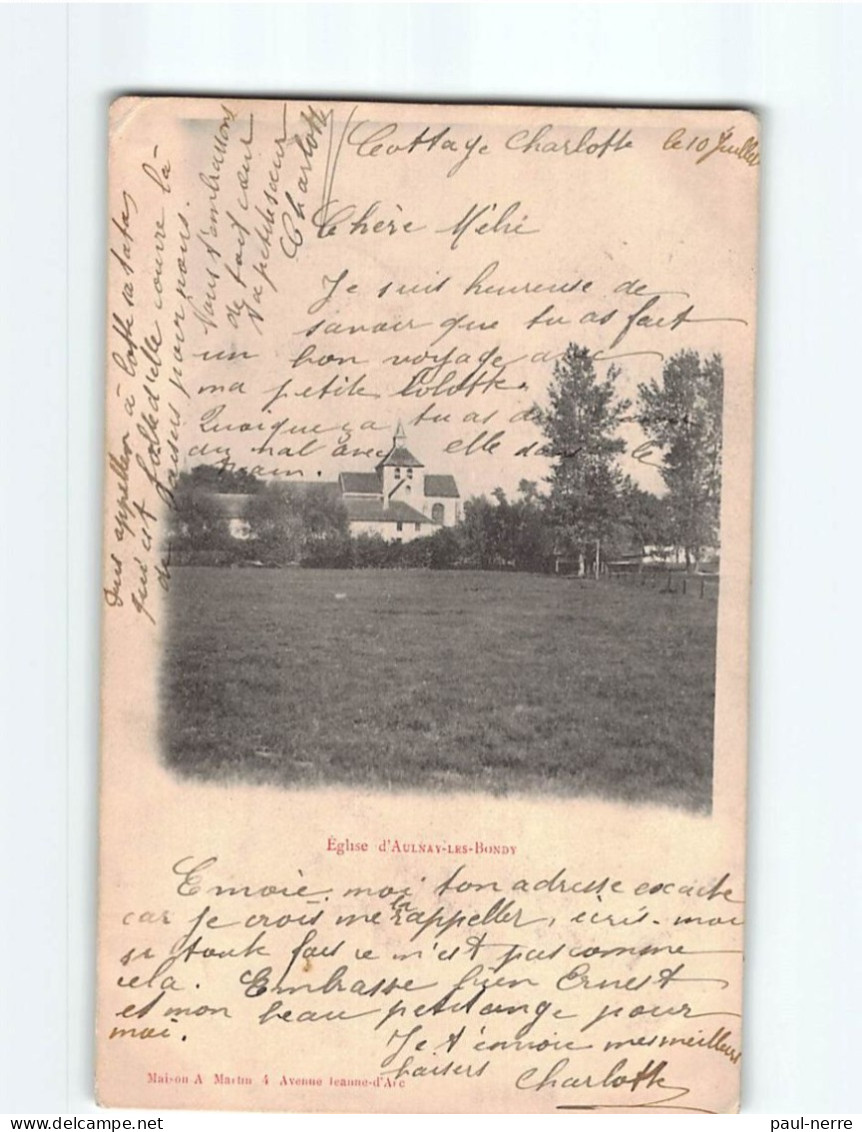 Cottage Charlotte le 10 Juillet
Chère Méhi
Je suis heureuse de
savoir que tu as fait
un bon voyage avec
ma petite Lolotte,
Quoique ça tu as dû
du mal avec elle dans le
train
dis appeller à Lotte sa tata
qu'est folle d'elle couvre là
de baisers pour nous.
Nous t'embrassons
de tout cœur
Ta petite sœur
Charlotte
Église d'AULNAY-LES-BONDY
Envoie moi ton adresse exacte
car je crois me la rappeller, écris-moi
si toute fois ce n'est pas comme
cela. Embrasse bien Ernest
et mon beau petit ange pour
moi.
Je t'envoie mes meilleurs
baisers Charlotte
Maison A Martin 4 Avenue Jeanne-d'Arc
paul-nerre
Delcampe.net